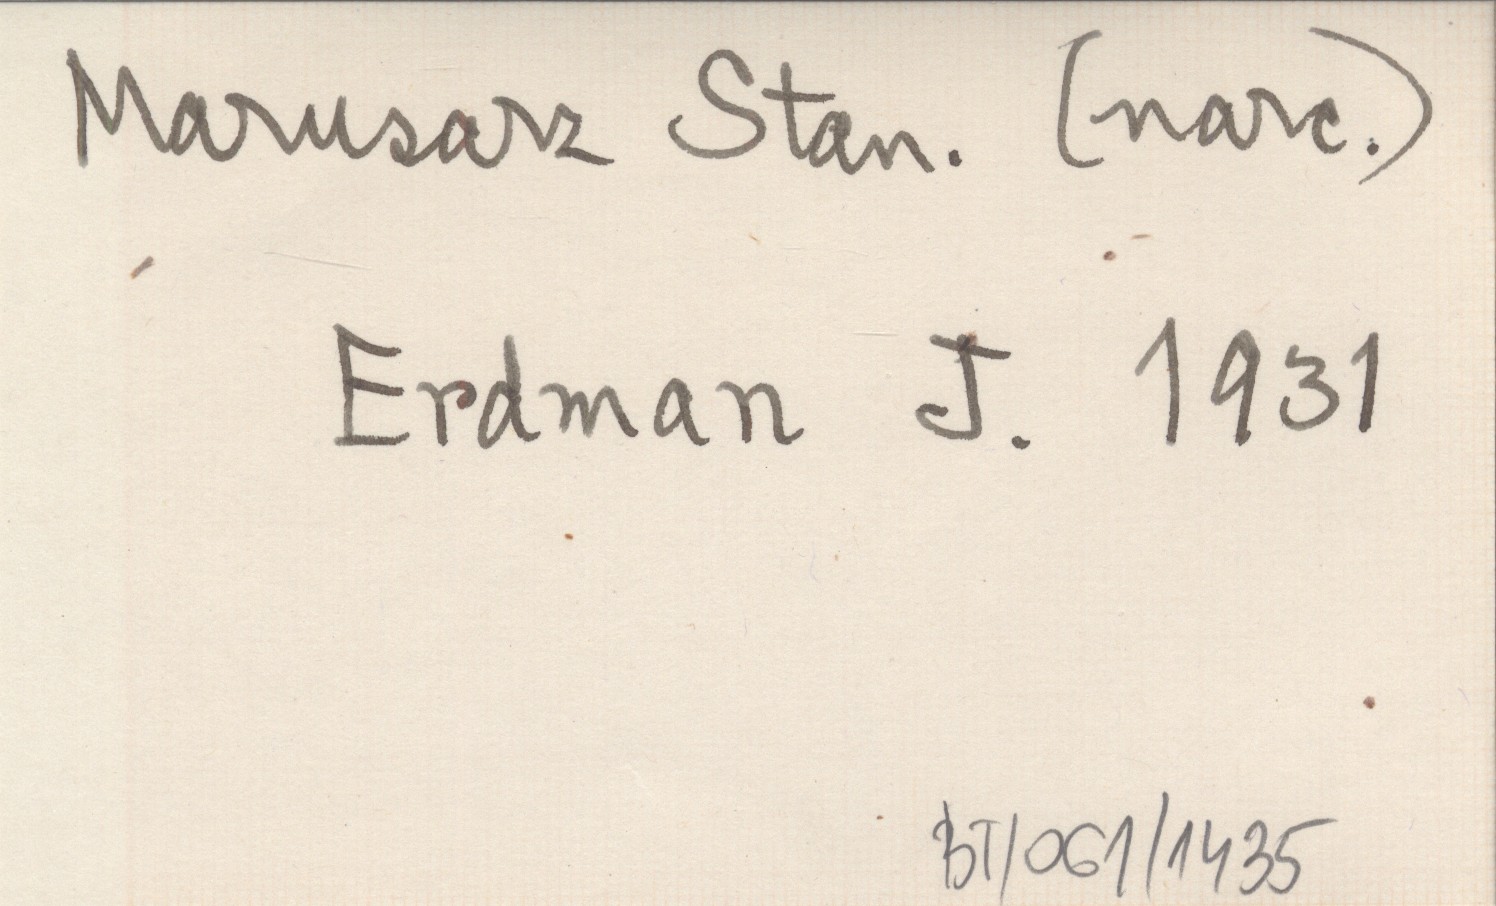 Marusarz Stan. (narc.)
Erdman J. 1931
BT/061/1435